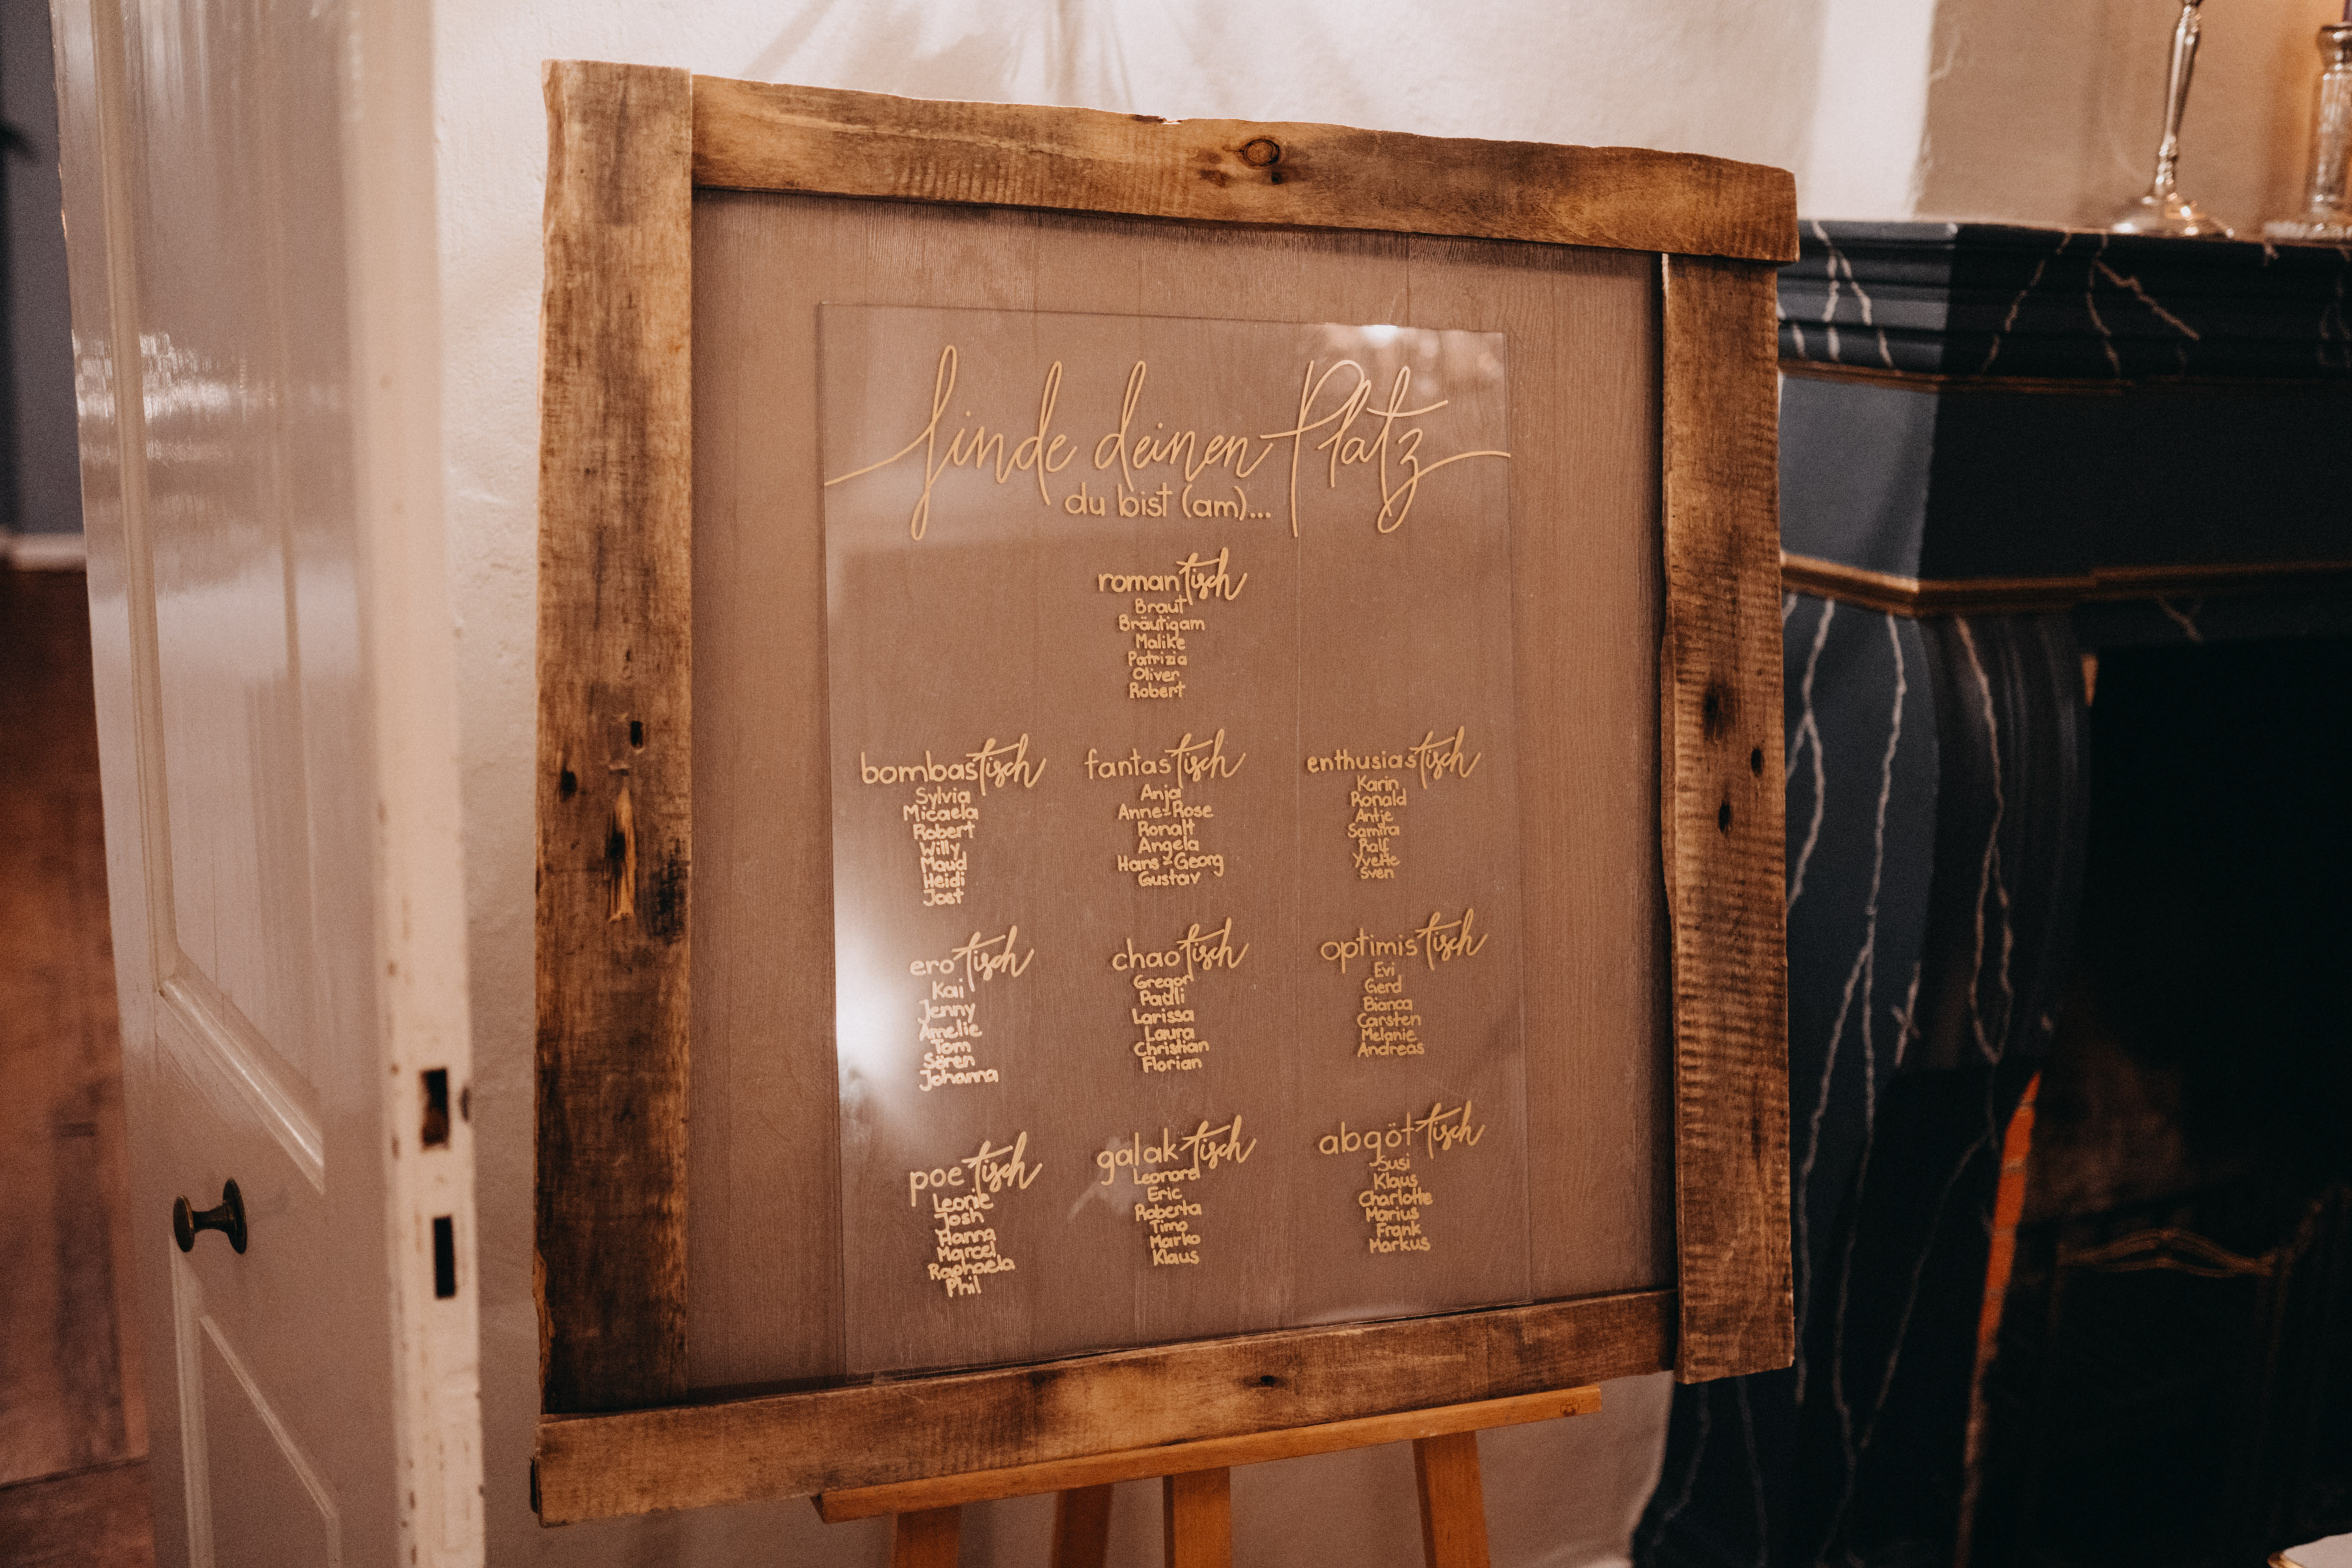 finde deinen Platz
du bist (am)...
romantisch
Braut
Bräutigam
Malike
Patrizia
Oliver
Robert
bombastisch
Sylvia
Micaela
Robert
Willy
Maud
Heidi
Jost
fantastisch
Anja
Anne-Rose
Ronalt
Angela
Hans-Georg
Gustav
enthusiastisch
Karin
Ronald
Antje
Samira
Ralf
Yvette
Sven
erotisch
Kai
Jenny
Amelie
Tom
Sören
Johanna
chaotisch
Gregor
Paulli
Larissa
Laura
Christian
Florian
optimistisch
Evi
Gerd
Bianca
Carsten
Melanie
Andreas
poetisch
Leonie
Josh
Hanna
Marcel
Raphaela
Phil
galaktisch
Leonore
Eric
Roberta
Timo
Marko
Klaus
abgöttisch
Susi
Klaus
Charlotte
Marius
Frank
Markus